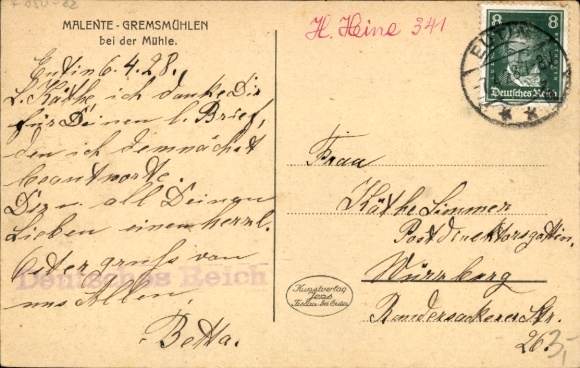 MALENTE - GREMSMÜHLEN
bei der Mühle.
Eutin 6.4.28.
L. Käthe ich danke Dir
für Deinen l. Brief,
den ich demnächst
beantworte.
Dir u. all Deinen
Lieben einen herzl.
Ostergruß von
uns Allen,
Betta.
Deutsches Reich
H. Heine 341
8 8
Deutsches Reich
EUTIN
Frau
Käthe Simmer
Postdirektorsgattin,
Würzburg
Randersackerer Str.
26.
3,-
Kunstverlag
bei Eutin